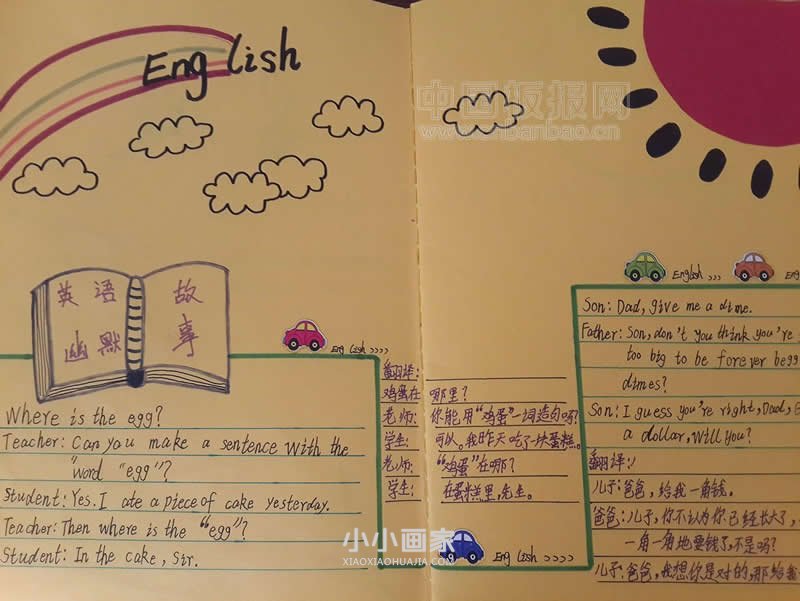 English
中国板报网
英语 故
幽默 事
English >>>>
Where is the egg?
Teacher: Can you make a sentence with the
"word "egg"?
Student: Yes. I ate a piece of cake yesterday.
Teacher: Then where is the "egg"?
Student: In the cake, sir.
翻译:
鸡蛋在哪里?
老师: 你能用"鸡蛋"一词造句吗?
学生: 可以。我昨天吃了一块蛋糕。
老师: "鸡蛋"在哪?
学生: 在蛋糕里,先生。
English >>>>
English >>>
Son: Dad, give me a dime.
Father: Son, don't you think you're
too big to be forever begg
dimes?
Son: I guess you're right, Dad,
a dollar, will you?
翻译:
儿子: 爸爸,给我一角钱。
爸爸: 儿子,你不认为你已经长大了,
一角一角地要钱了,不是吗?
儿子: 爸爸,我想你是对的,那给我
小小画家
XIAOXIAOHUAJIA.COM